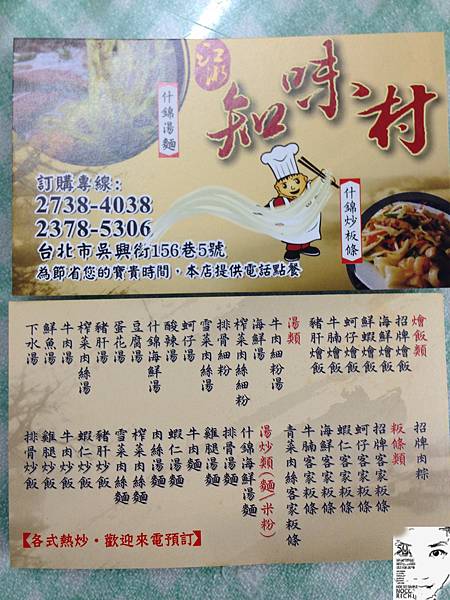 江湖
知味村
什錦湯麵
什錦炒板條
訂購專線:
2738-4038
2378-5306
台北市吳興街156巷5號
為節省您的寶貴時間,本店提供電話點餐
燴飯類
招牌燴飯
海鮮燴飯
鮮蝦燴飯
蚵仔燴飯
牛肉燴飯
牛腩燴飯
豬肝燴飯
湯類
牛肉細粉湯
海鮮湯
榨菜肉絲細粉
排骨細粉
雪菜肉絲湯
蚵仔湯
酸辣湯
什錦海鮮湯
豆腐湯
蛋花湯
豬肝湯
榨菜肉絲湯
牛肉湯
鮮魚湯
下水湯
招牌肉粽
板條類
招牌客家板條
蚵仔客家板條
蝦仁客家板條
海鮮客家板條
牛腩客家板條
青菜肉絲客家板條
湯炒類(麵/米粉)
什錦海鮮湯麵
排骨湯麵
雞腿湯麵
牛肉湯麵
蝦仁湯麵
肉絲湯麵
榨菜肉絲麵
雪菜肉絲麵
豬肝炒飯
蝦仁炒飯
牛肉炒飯
雞腿炒飯
排骨炒飯
【各式熱炒·歡迎來電預訂】